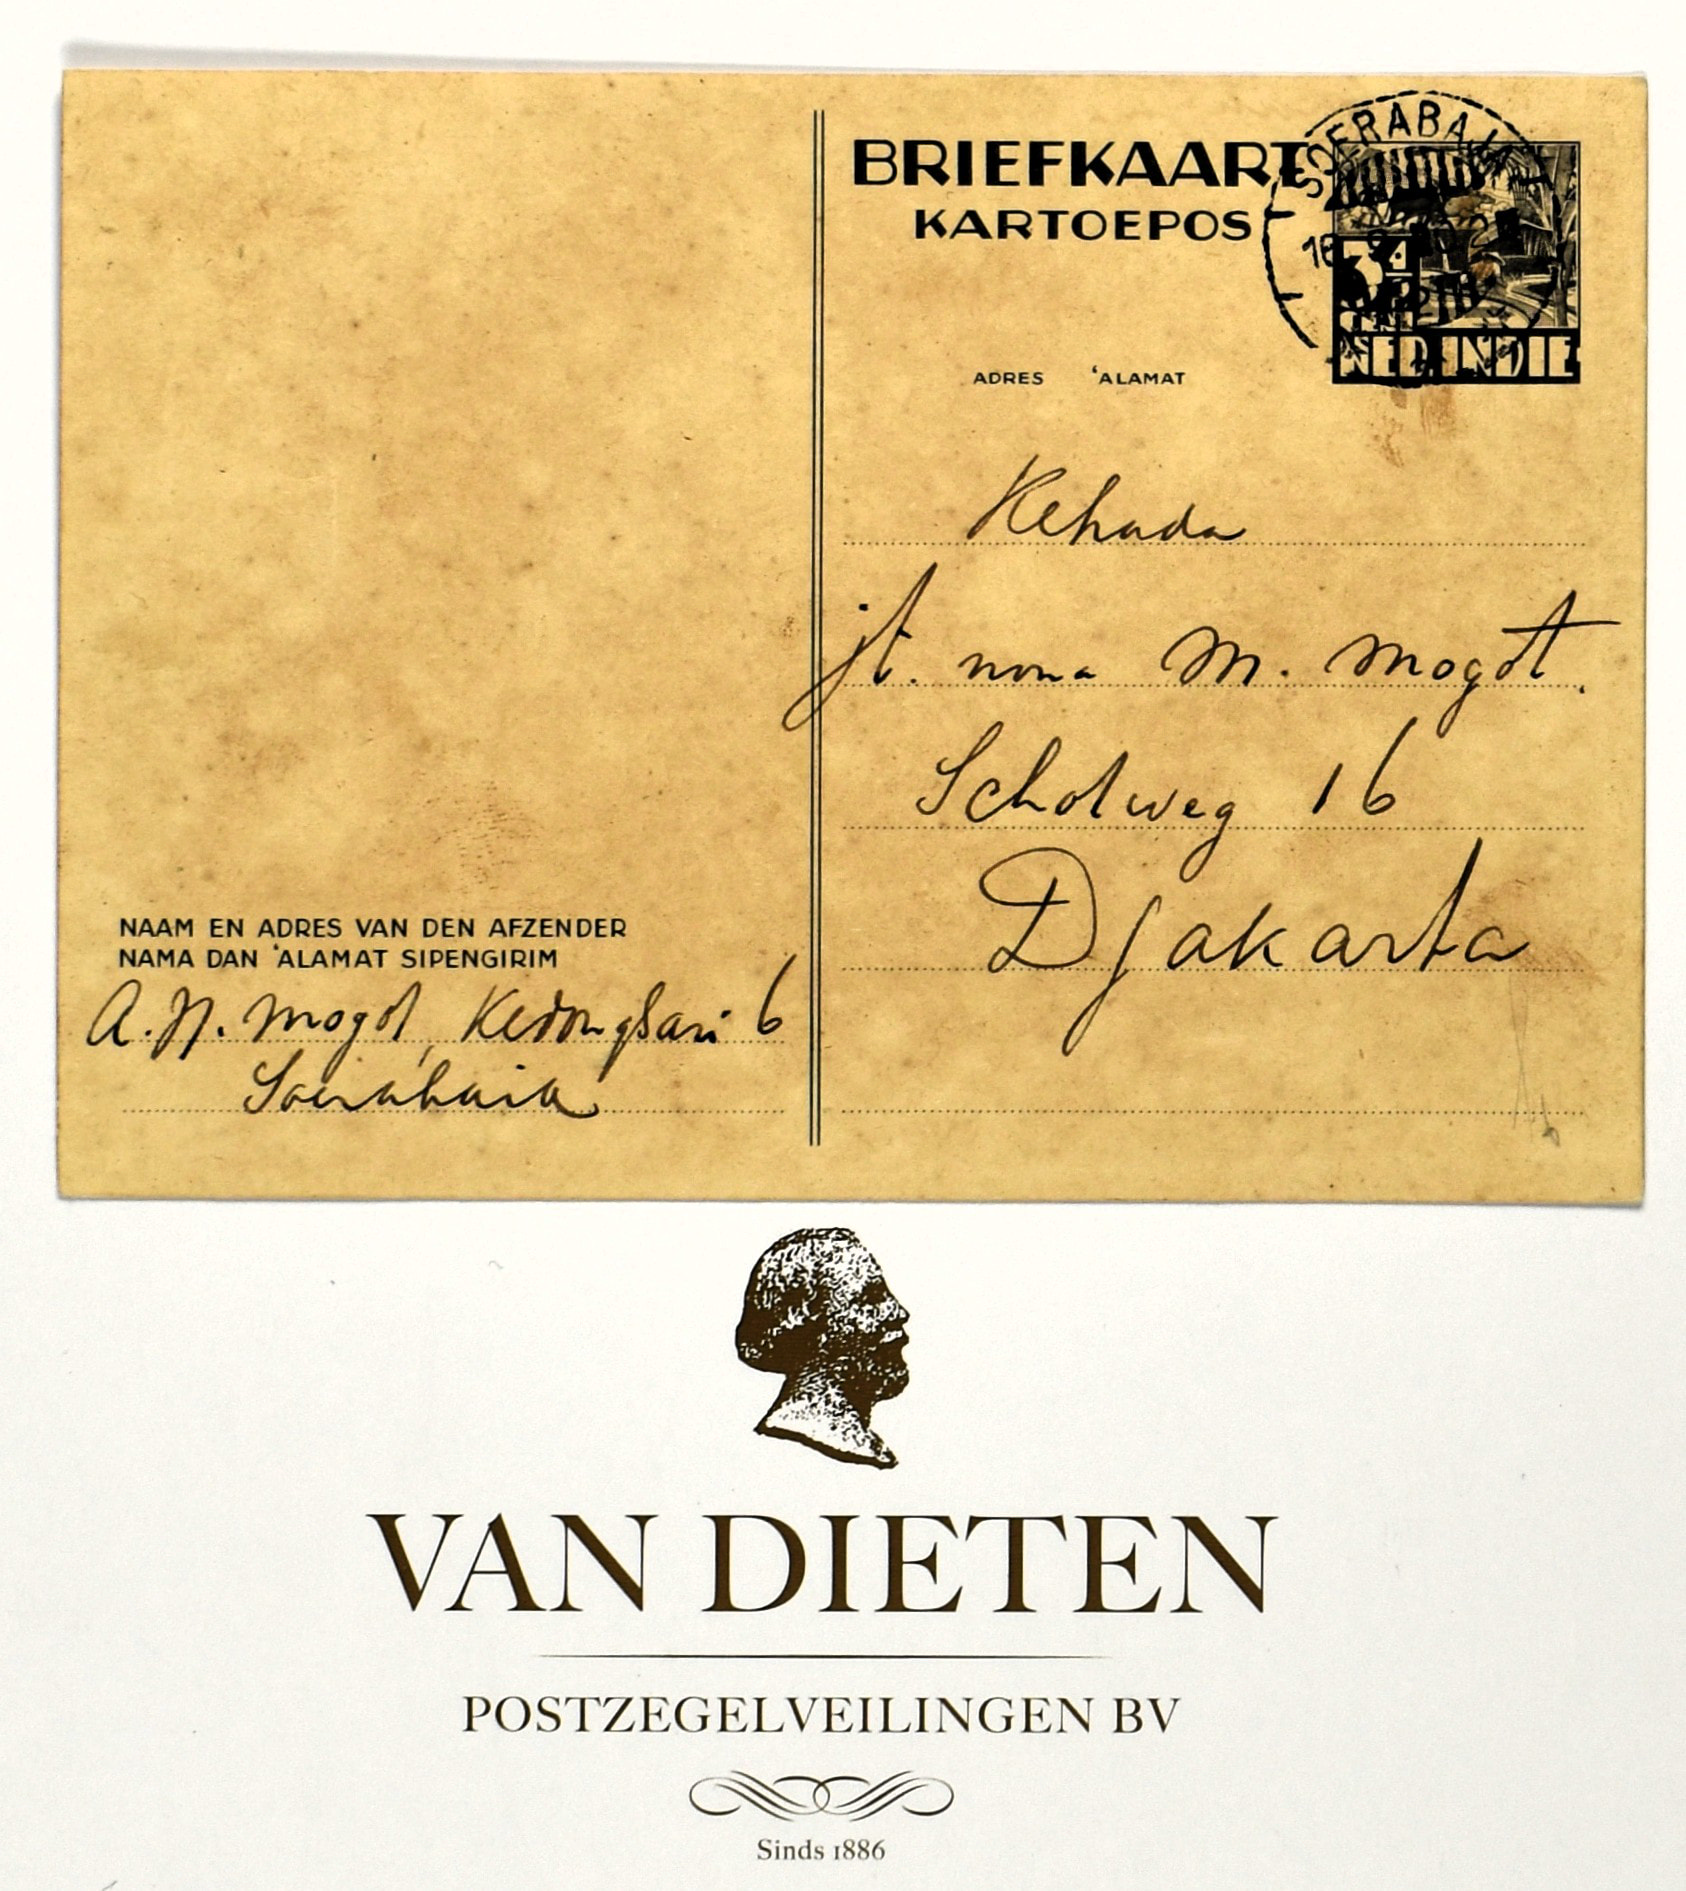 BRIEFKAART
KARTOEPOS
SOERABAJA
3½
CENT
NED. INDIE
ADRES 'ALAMAT
Kehada
jt. nona M. Mogot.
Scholweg 16
Djakarta
NAAM EN ADRES VAN DEN AFZENDER
NAMA DAN 'ALAMAT SIPENGIRIM
Mogot, Kedongsari 6
Soerabaia
VAN DIETEN
POSTZEGELVEILINGEN BV
Sinds 1886